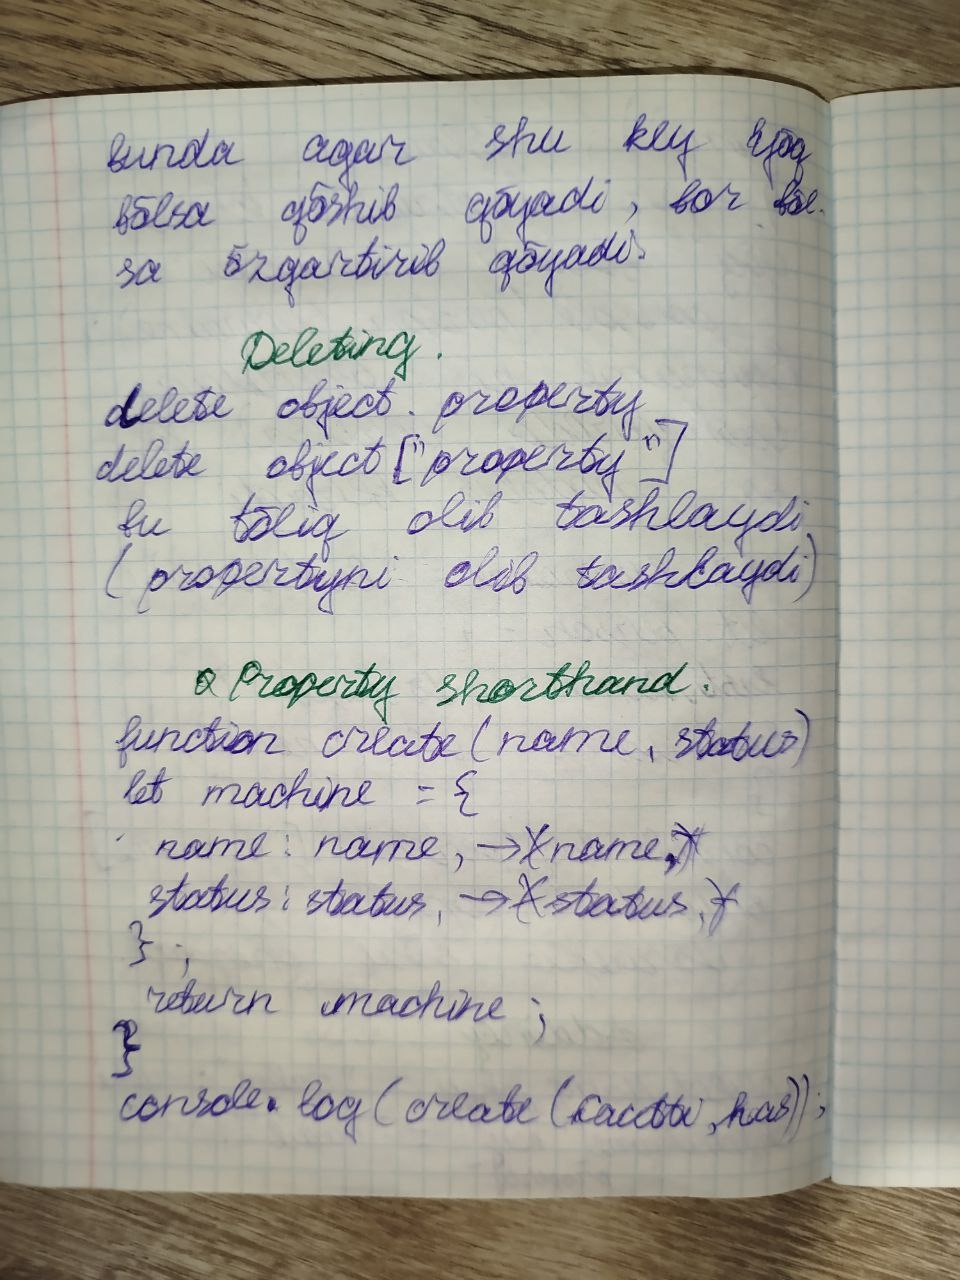 bunda agar shu key yōq
bōlsa qōshib qōyadi, bor bōl-
sa ōzgartirib qōyadi.
Deleting.
delete object.property
delete object["property"]
bu tōliq olib tashlaydi
(propertyni olib tashlaydi)
Property shorthand.
function create(name, status)
let machine = {
name: name, → name,
status: status, → status,
};
return machine;
}
console.log(create( , has));